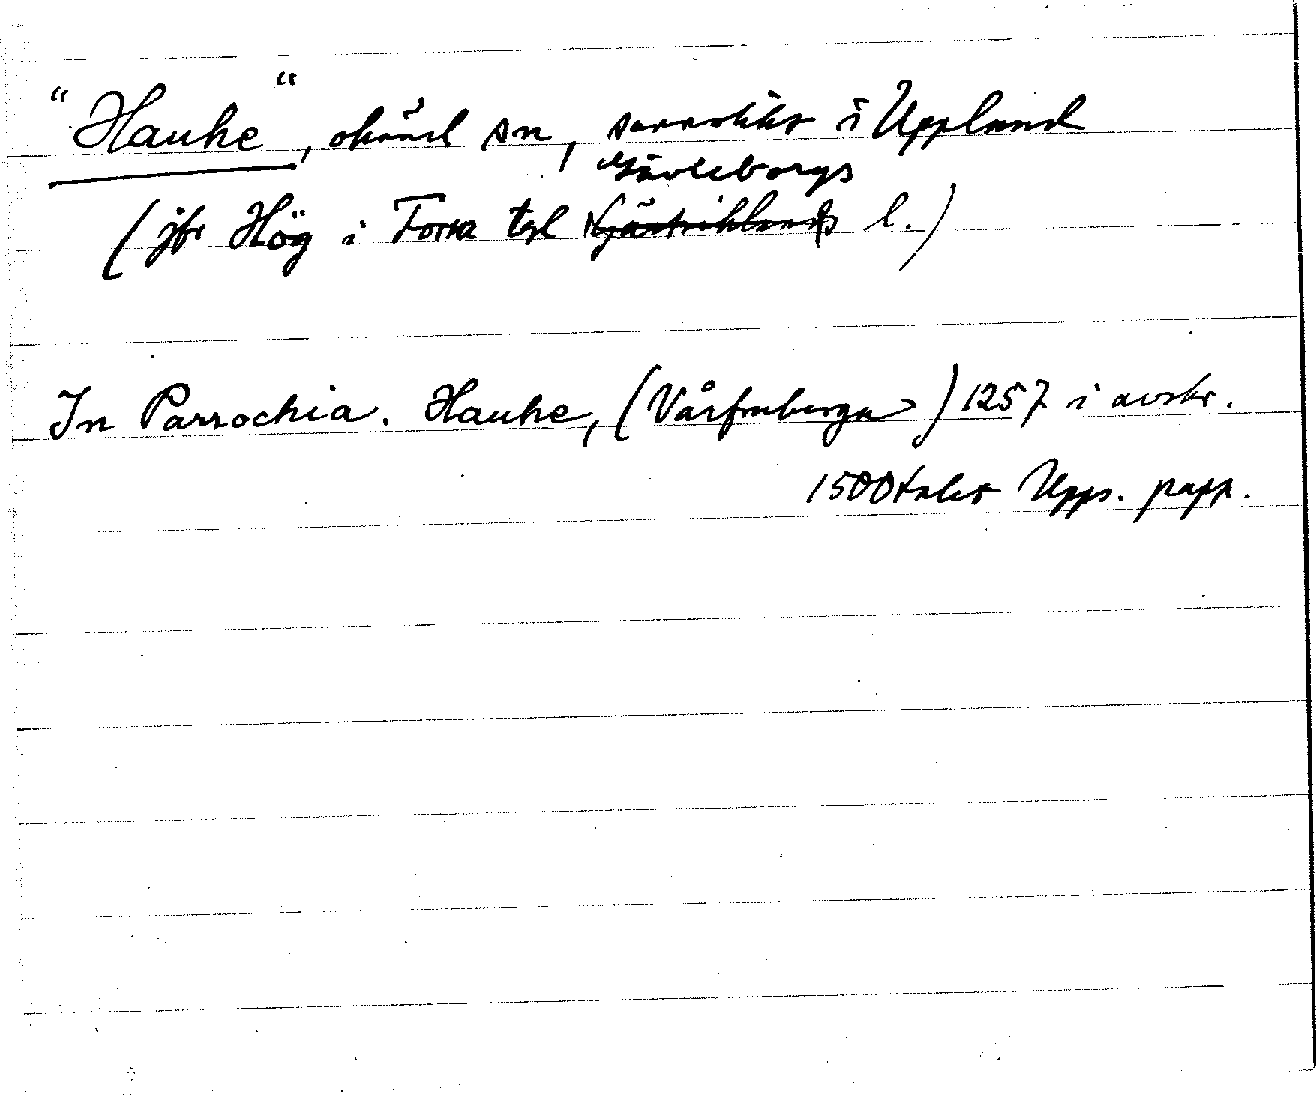 "Hauhe", okänd sn, sannolikt i Uppland
Gävleborgs
(jfr Hög i Forsa tgl Gästriklands l.)
In Parrochia. Hauhe, (Vårfruberga) 1257 i avskr.
1500talet Upps. papp.